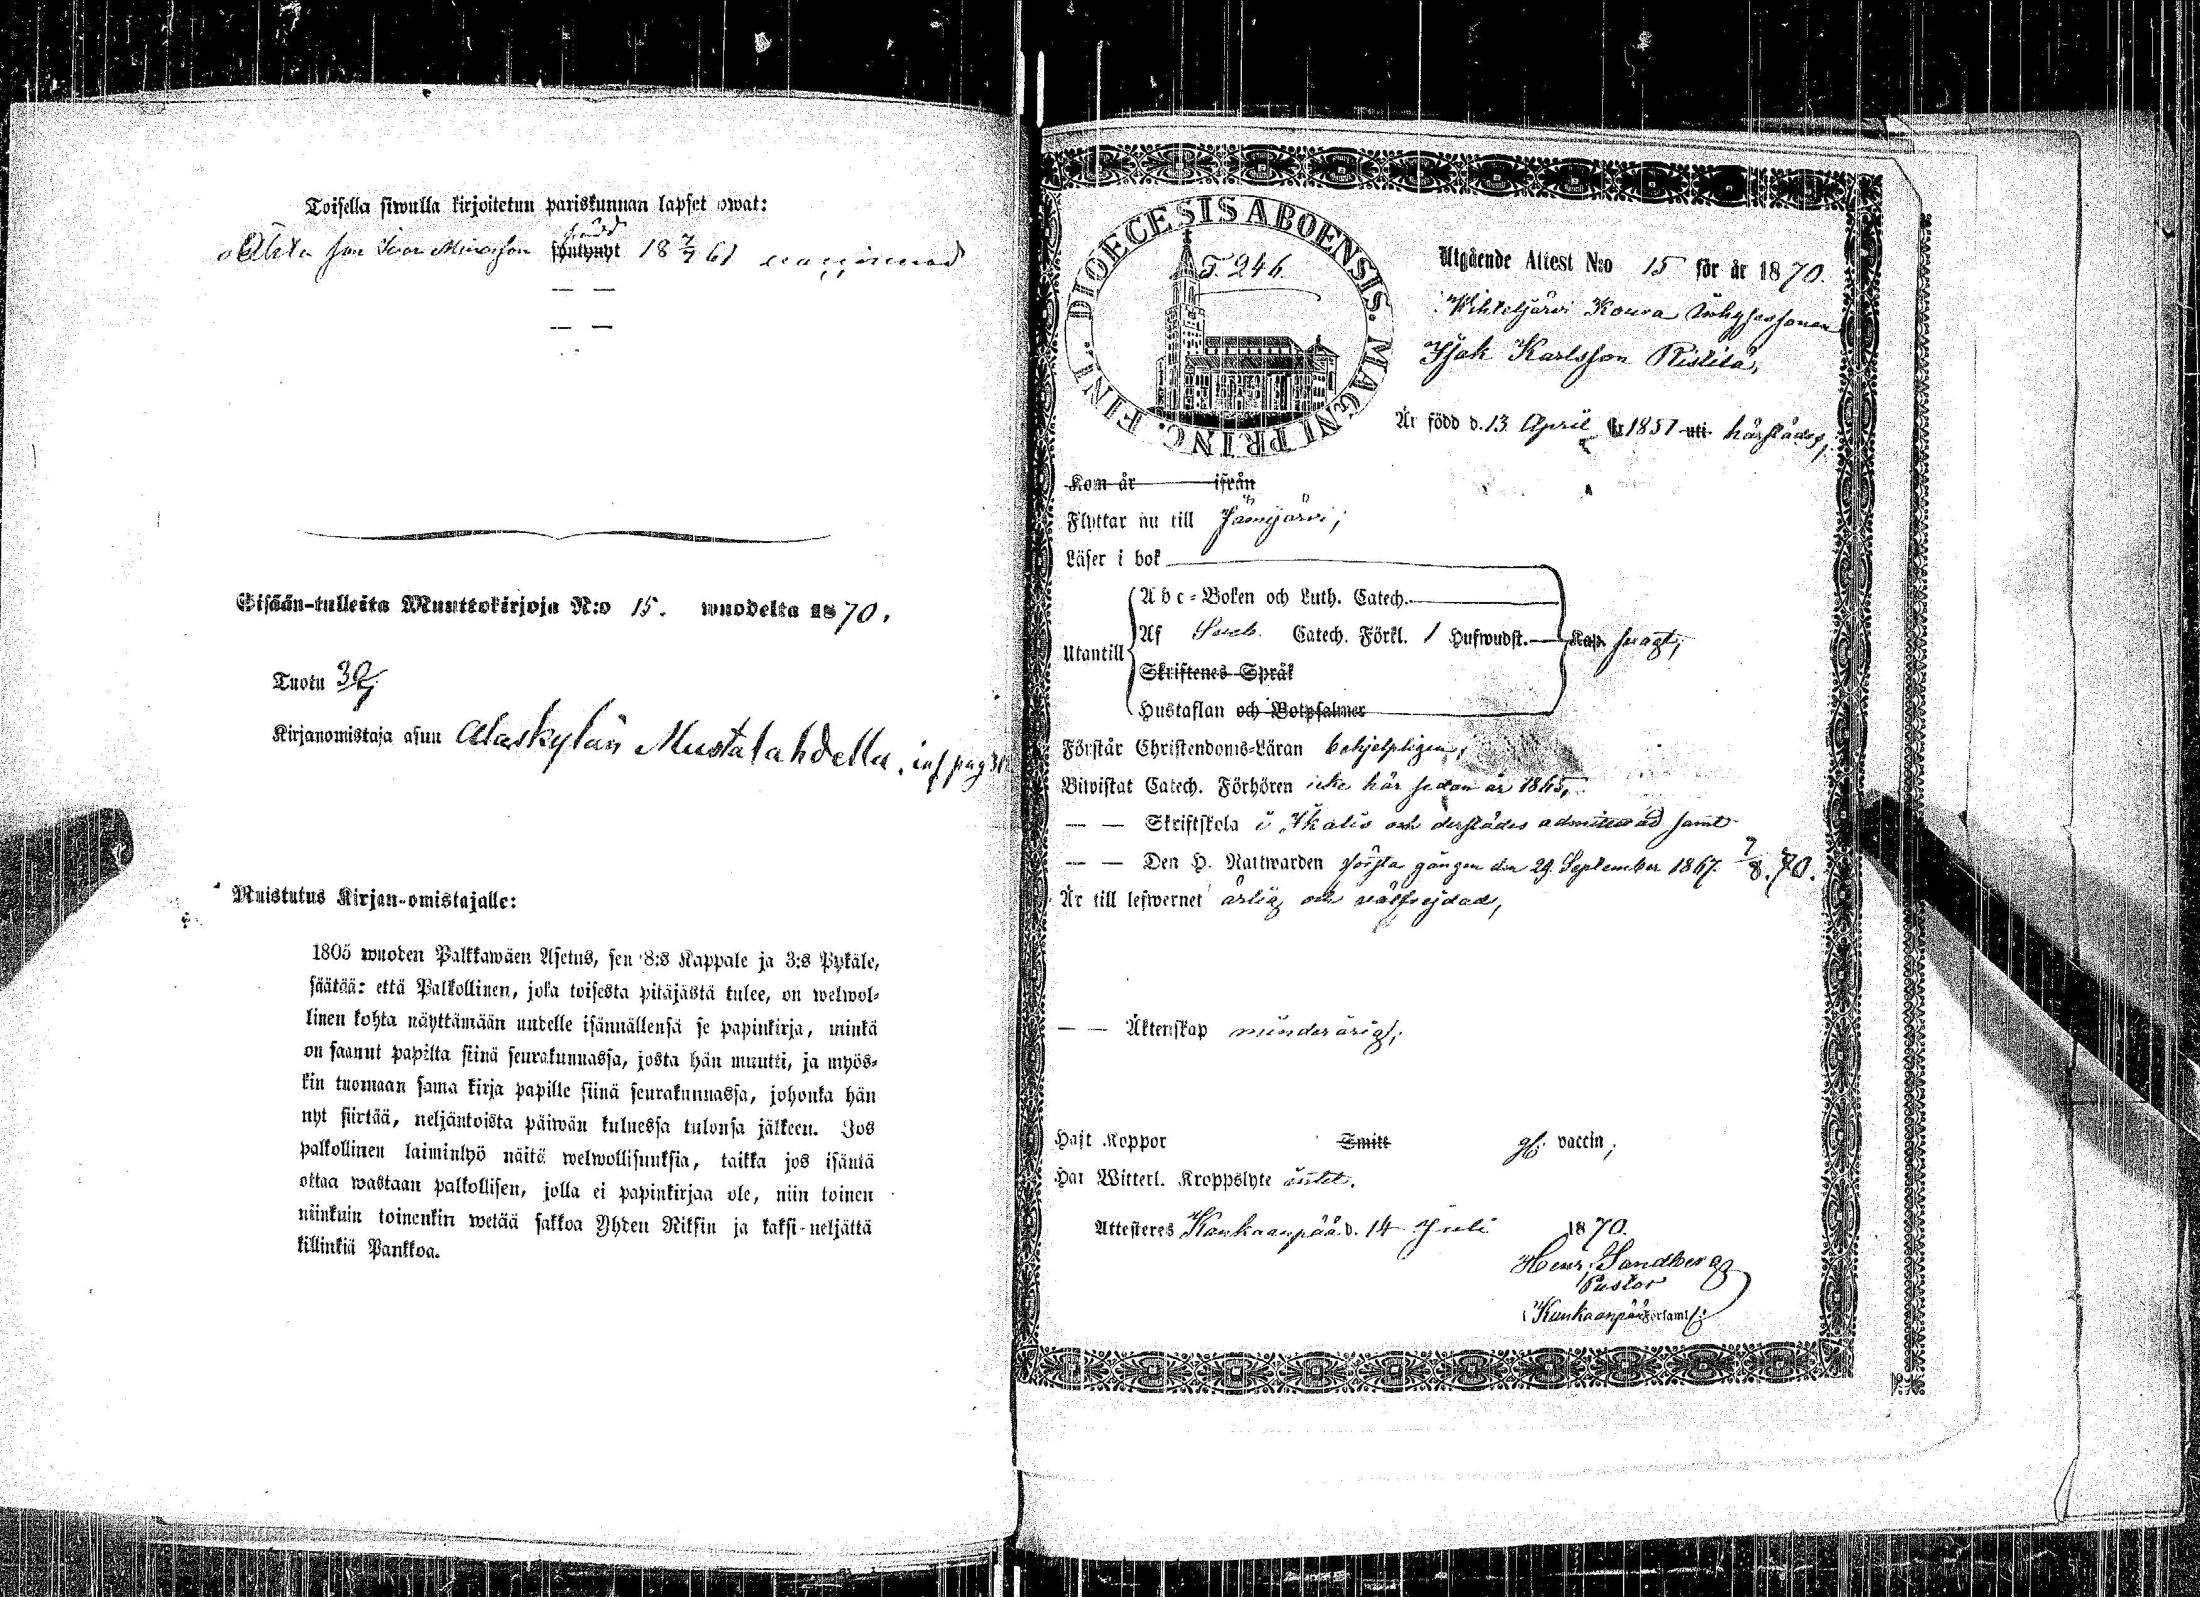 Toisella siwulla kirjoitetun pariskunnan lapset owat:
Äkta son Ivar Minorsson syntynyt född 18 7/7 61 vaccinerad
— —
— —
Sisään-tulleita Muuttokirjoja N:o 15. wuodelta 1870.
Tuotu
Kirjanomistaja asuu Alaskylän Mustalahdella, inf pag
Muistutus Kirjan-omistajalle:
1805 wuoden Palkkawäen Asetus, sen 8:s Kappale ja 3:s Pykäle,
säätää: että Palkollinen, joka toisesta pitäjästä tulee, on welwol-
linen kohta näyttämään uudelle isännällensä se papinkirja, minkä
on saanut papilta siinä seurakunnassa, josta hän muutti, ja myös-
kin tuomaan sama kirja papille siinä seurakunnassa, johonka hän
nyt siirtää, neljäntoista päiwän kuluessa tulonsa jälkeen. Jos
palkollinen laiminlyö näitä welwollisuuksia, taikka jos isäntä
ottaa wastaan palkollisen, jolla ei papinkirjaa ole, niin toinen
niinkuin toinenkin wetää sakkoa Yhden Riksin ja kaksi-neljättä
killinkiä Pankkoa.
DIOECESIS ABOENSIS. MAGNI PRINC. FINL.
T. 246.
Utgående Attest N:o 15 för år 1870.
Wihteljärvi Kouva
Isak Karlsson Ristilä,
Är född d. 13 April år 1851 uti härstädes,
Kom år ifrån
Flyttar nu till Jämijärvi,
Läser i bok
Utantill
Abc-Boken och Luth. Catech.
Af Sveb. Catech. Förkl. 1 Hufwudst. Kap. svagt,
Skriftenes Språk
Hustaflan och Botpsalmer
Förstår Christendoms-Läran behjelpligen,
Biwistat Catech. Förhören icke här sedan år 1865,
— — Skriftskola i Ikalis och derstädes admitterad samt
— — Den H. Nattwarden första gången den 29. September 1867. 7/8. 70.
Är till lefwernet ärlig och välfrejdad,
— — Äktenskap minderårig,
Haft Koppor Smitt gl. vaccin,
Har Witterl. Kroppslyte intet.
Attesteres Kankaanpää d. 14 Juli 1870.
Henr. Sandberg
Pastor
i Kankaanpää Församl.